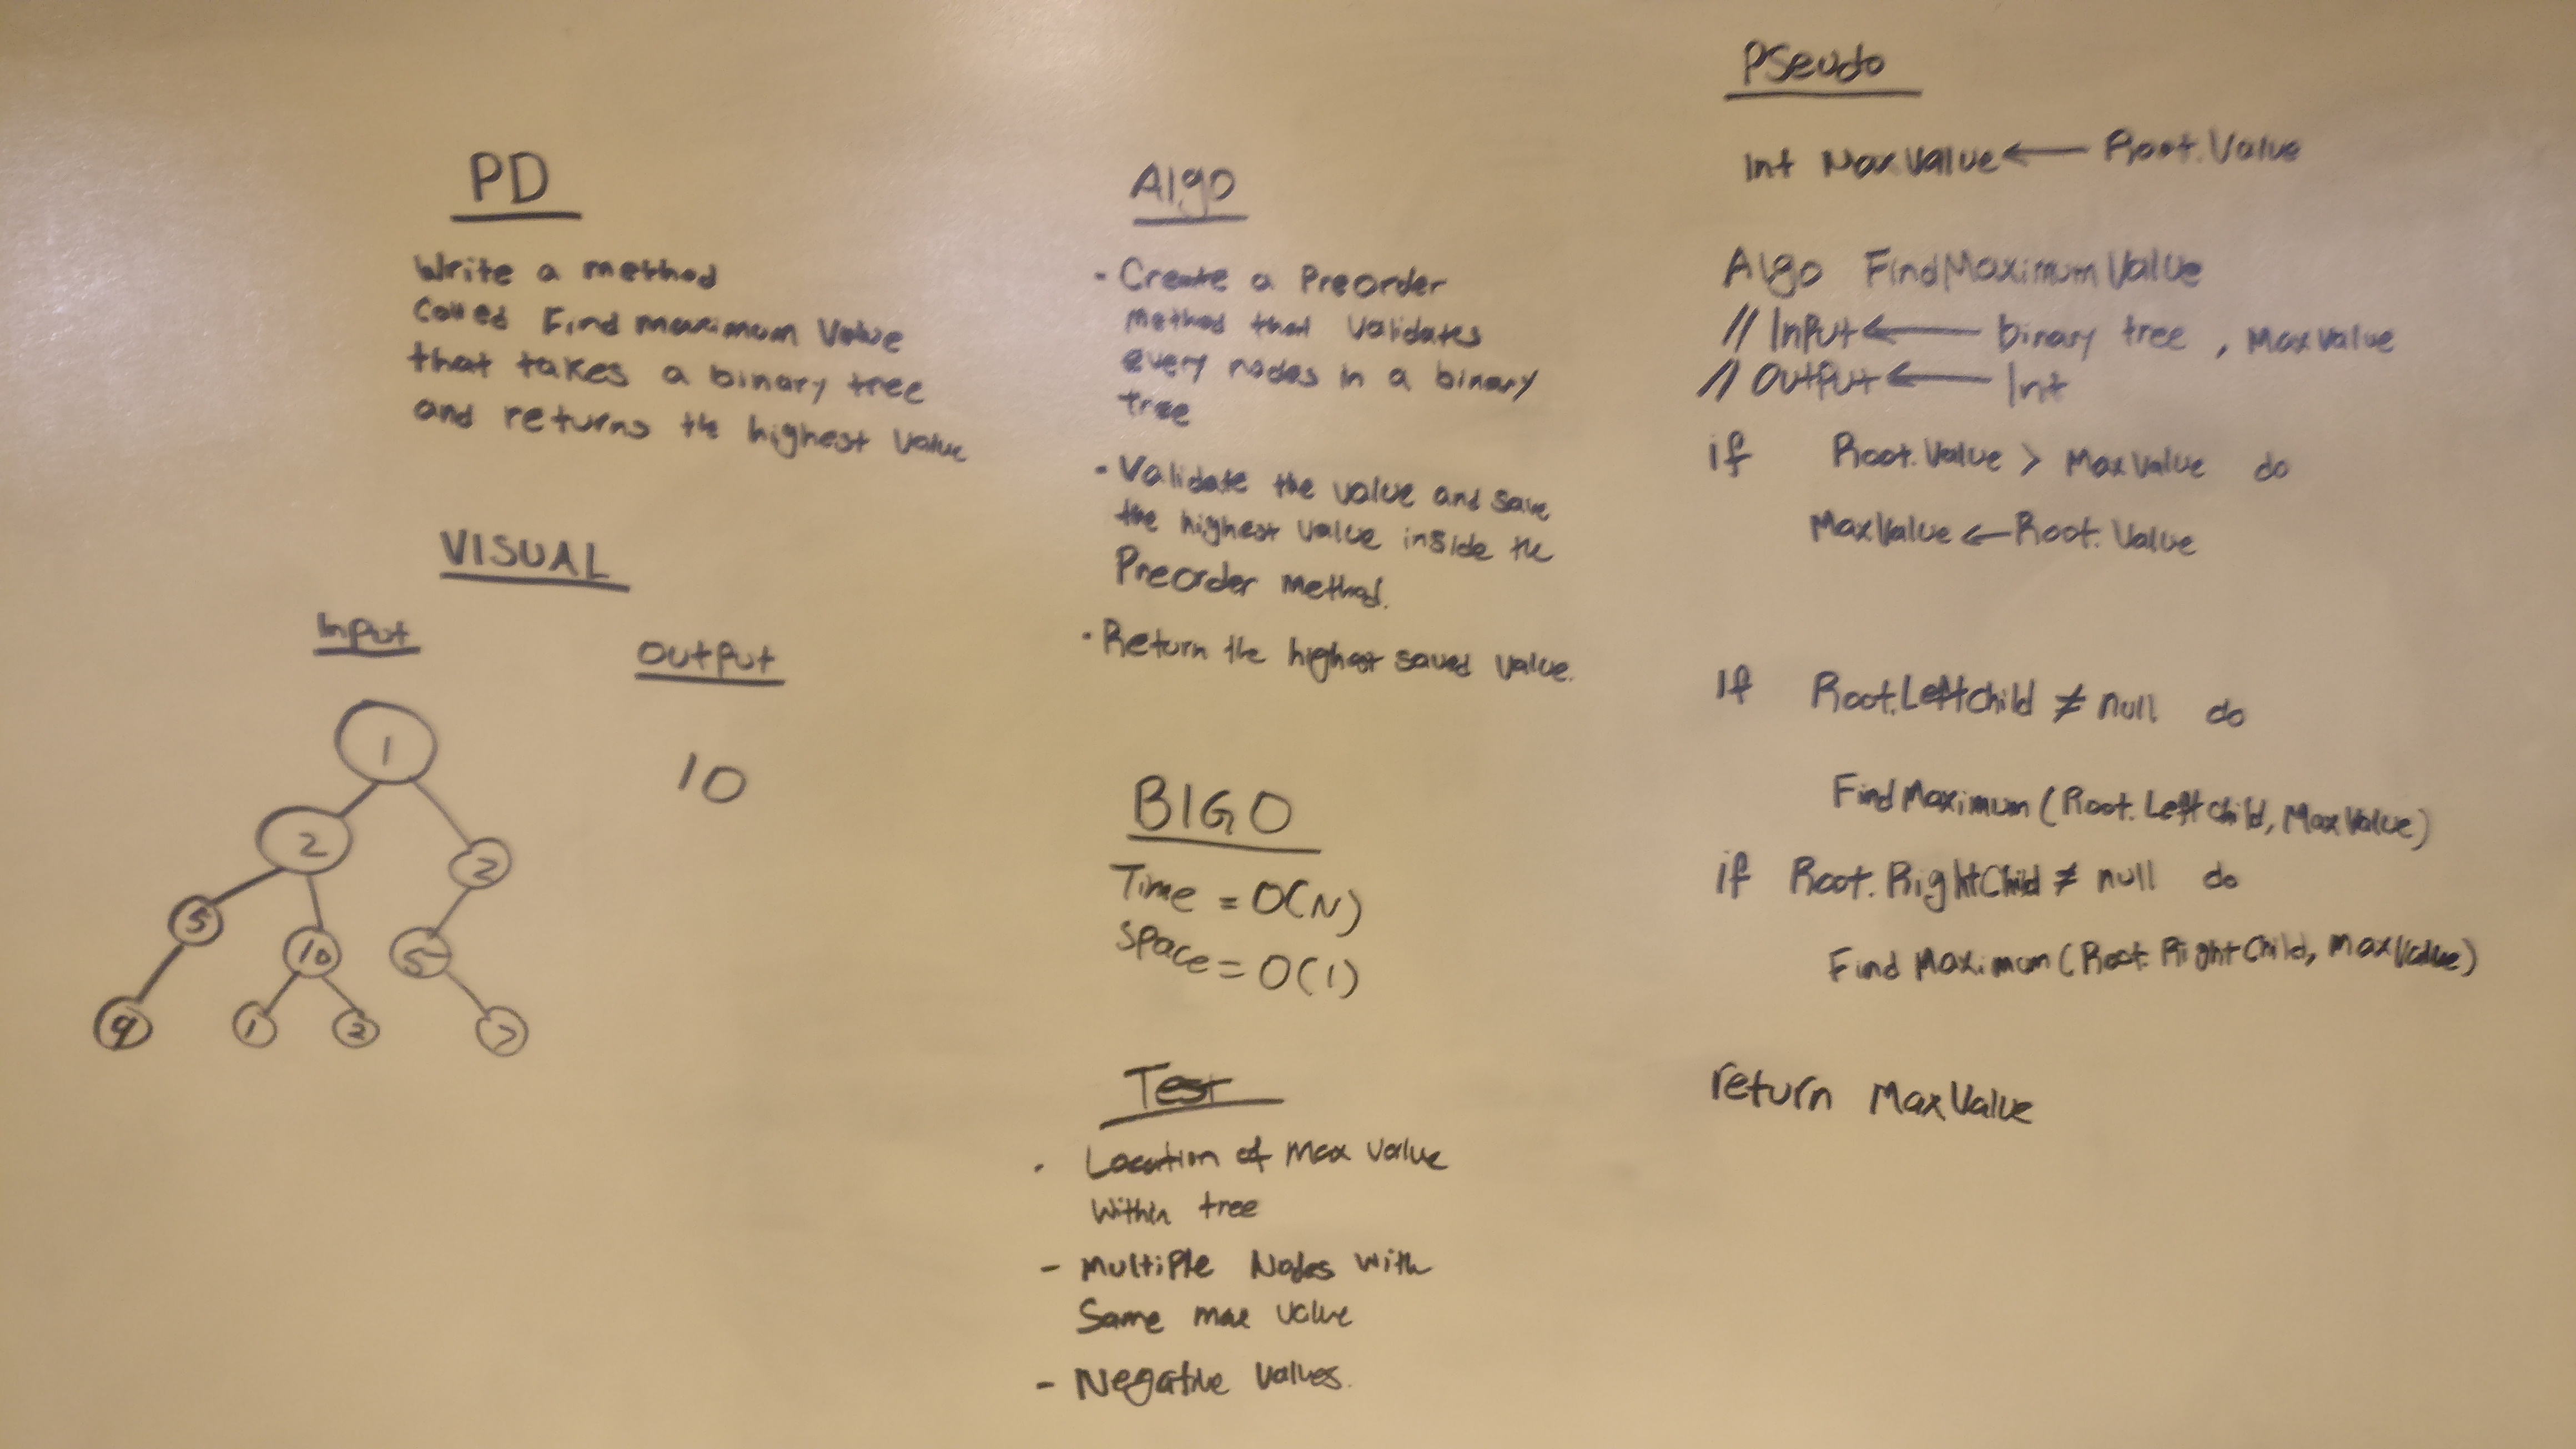 PD
Write a method
Called Find maximum Value
that takes a binary tree
and returns the highest Value
VISUAL
Input
Output
1
10
2
2
5
10
5
9
1
2
7
Algo
- Create a Preorder
method that Validates
every nodes in a binary
tree
- Validate the value and save
the highest value inside the
Preorder method.
- Return the highest saved value.
BIGO
Time = O(N)
Space = O(1)
Test
- Location of max value
within tree
- Multiple Nodes with
Same max value
- Negative values.
Pseudo
Int MaxValue ← Root.Value
Algo FindMaximumValue
// Input ← binary tree , MaxValue
// Output ← Int
if Root.Value > MaxValue do
MaxValue ← Root.Value
If Root.LeftChild ≠ null do
FindMaximum(Root.LeftChild, MaxValue)
if Root.RightChild ≠ null do
Find Maximum(Root.RightChild, maxValue)
return MaxValue